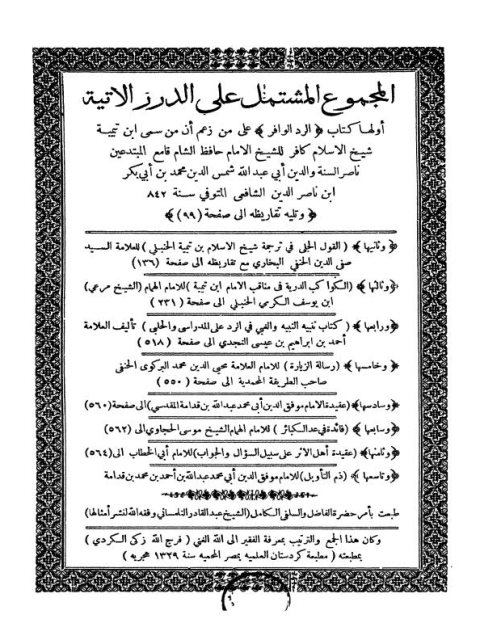 المجموع المشتمل على الدرر الاتية
أولها كتاب ﴿ الرد الوافر ﴾ على من زعم أن من سمى ابن تيمية
شيخ الاسلام كافر للشيخ الامام حافظ الشام قامع المبتدعين
ناصر السنة والدين أبي عبد الله شمس الدين محمد بن أبي بكر
ابن ناصر الدين الشافعى المتوفي سنة ٨٤٢
﴿ وتليه تقاريظه الى صفحة (٩٩) ﴾
﴿ وثانيها ﴾ ( القول الجلى في ترجمة شيخ الاسلام بن تيمية الحنبلي ) للعلامة السيد
صفى الدين الحنفي البخاري مع تقاريظه الى صفحة (١٣٦)
﴿وثالثها﴾ (الكواكب الدرية في مناقب الامام ابن تيمية ) للامام الهمام (الشيخ مرعي)
ابن يوسف الكرمى الحنبلي الى صفحة ( ٢٣١ )
﴿ورابعها﴾ ( كتاب تنبيه النبيه والغبي في الرد على المدراسى والحلبي ) تأليف العلامة
أحمد بن ابراهيم بن عيسى النجدي الى صفحة ( ٥١٨ )
﴿ وخامسها ﴾ (رسالة الزيارة ) للامام العلامة محيى الدين محمد البركوى الحنفى
صاحب الطريقة المحمدية الى صفحة ( ٥٥٠ )
﴿وسادسها﴾(عقيدة الامام موفق الدين أبى محمد عبد الله بن قدامة المقدسي) الى صفحة (٥٦٠)
﴿ وسابعها ﴾ (فائدة في عد الكبائر ) للامام الهمام الشيخ موسى الحجاوي الى (٥٦٢)
﴿وثامنها﴾ (عقيدة أهل الاثر على سبيل السؤال والجواب) للامام أبي الخطاب الى (٥٦٤)
﴿وتاسعها ﴾ (ذم التأويل) للامام موفق الدين أبي محمد عبد الله بن أحمد بن محمد بن قدامة
طبعت بأمر حضرة الفاضل والسلفى الكامل (الشيخ عبد القادر التلمسانى وفقه الله لنشر أمثالها)
وكان هذا الجمع والترتيب بمعرفة الفقير الى الله الغنى ( فرج الله زكى الكردي )
بمطبعته ( مطبعة كردستان العلميه بمصر المحميه سنة ١٣٢٩ هجريه )